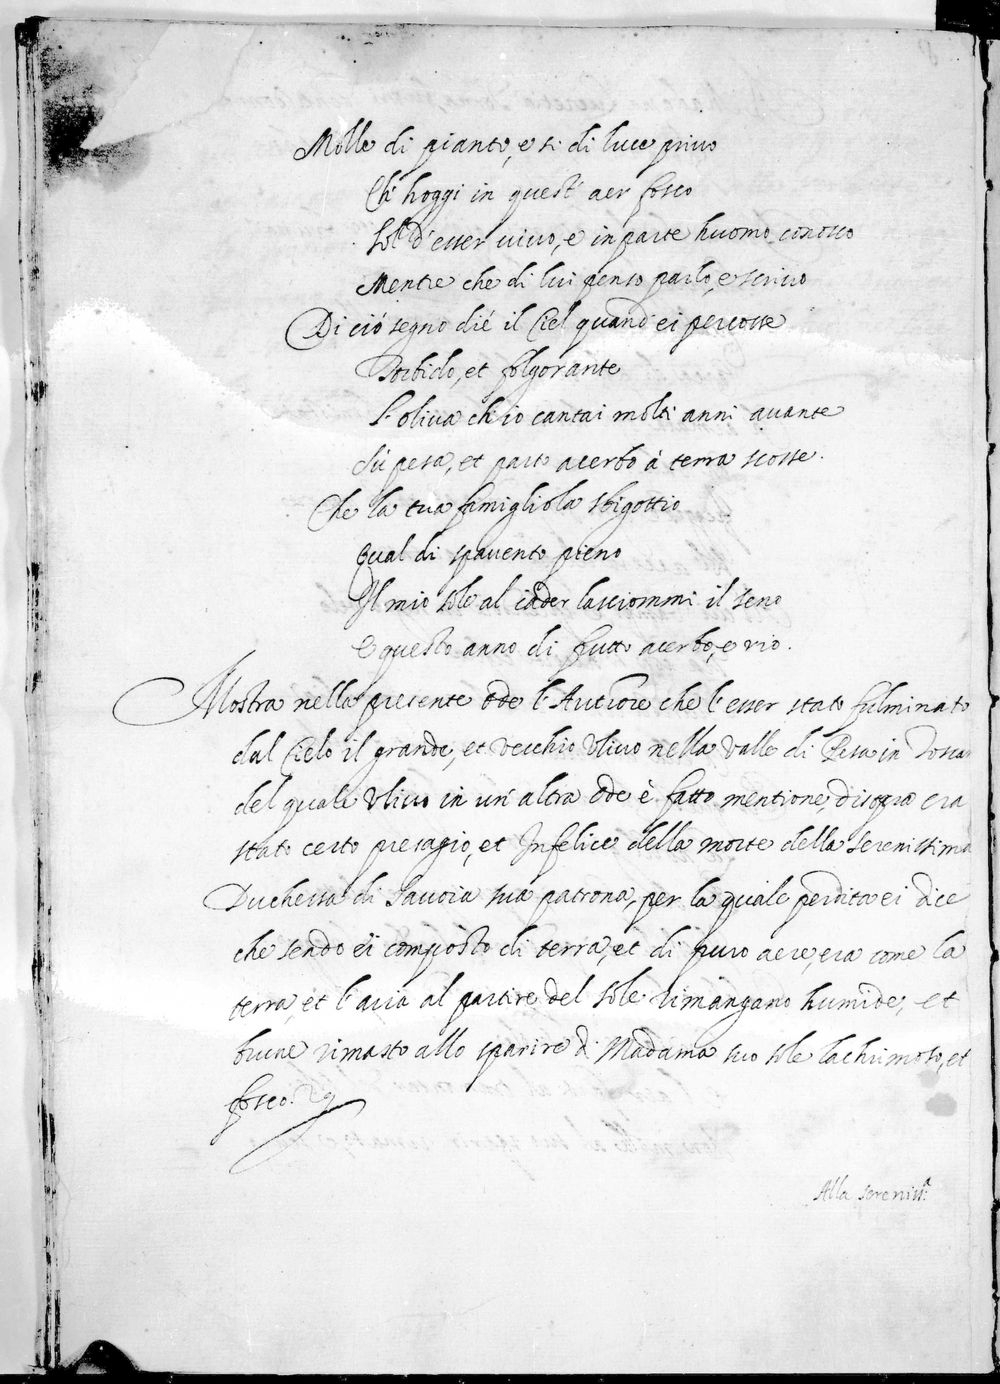 Molle di pianto, e sì di luce privo
Ch' hoggi in quest' aer fosco
Sol d' esser vivo, e in parte huomo conosco
Mentre che di lui penso parlo, e scrivo
Di ciò segno diè il Ciel quand' ei percosse
Torbido, et folgorante
L' oliva ch' io cantai molti anni avante
Sù pesa, et parto acerbo à terra scosse.
Che la tua famigliola sbigottio
Qual di spavento pieno
Il mio sole al cader lasciommi il seno
E questo anno di frutto acerbo, e rio.
Mostra nella presente Ode l' Auttore che l' esser stato fulminato
dal Cielo il grande, et vecchio Ulivo nella Valle di Pesa in Tosca
del quale Ulivo in un' altra Ode è fatto mentione, disopra era
stato certo presagio, et Infelice della morte della Serenissima
Duchessa di Savoia sua patrona, per la quale perdita ei dice
che sendo ei composto di terra, et di puro aere, era come la
terra, et l' aria al partire del sole rimangano humide, et
brune rimasto allo sparire di Madama suo sole lachrimoso, et
fosco.
Alla Sereniss.ª